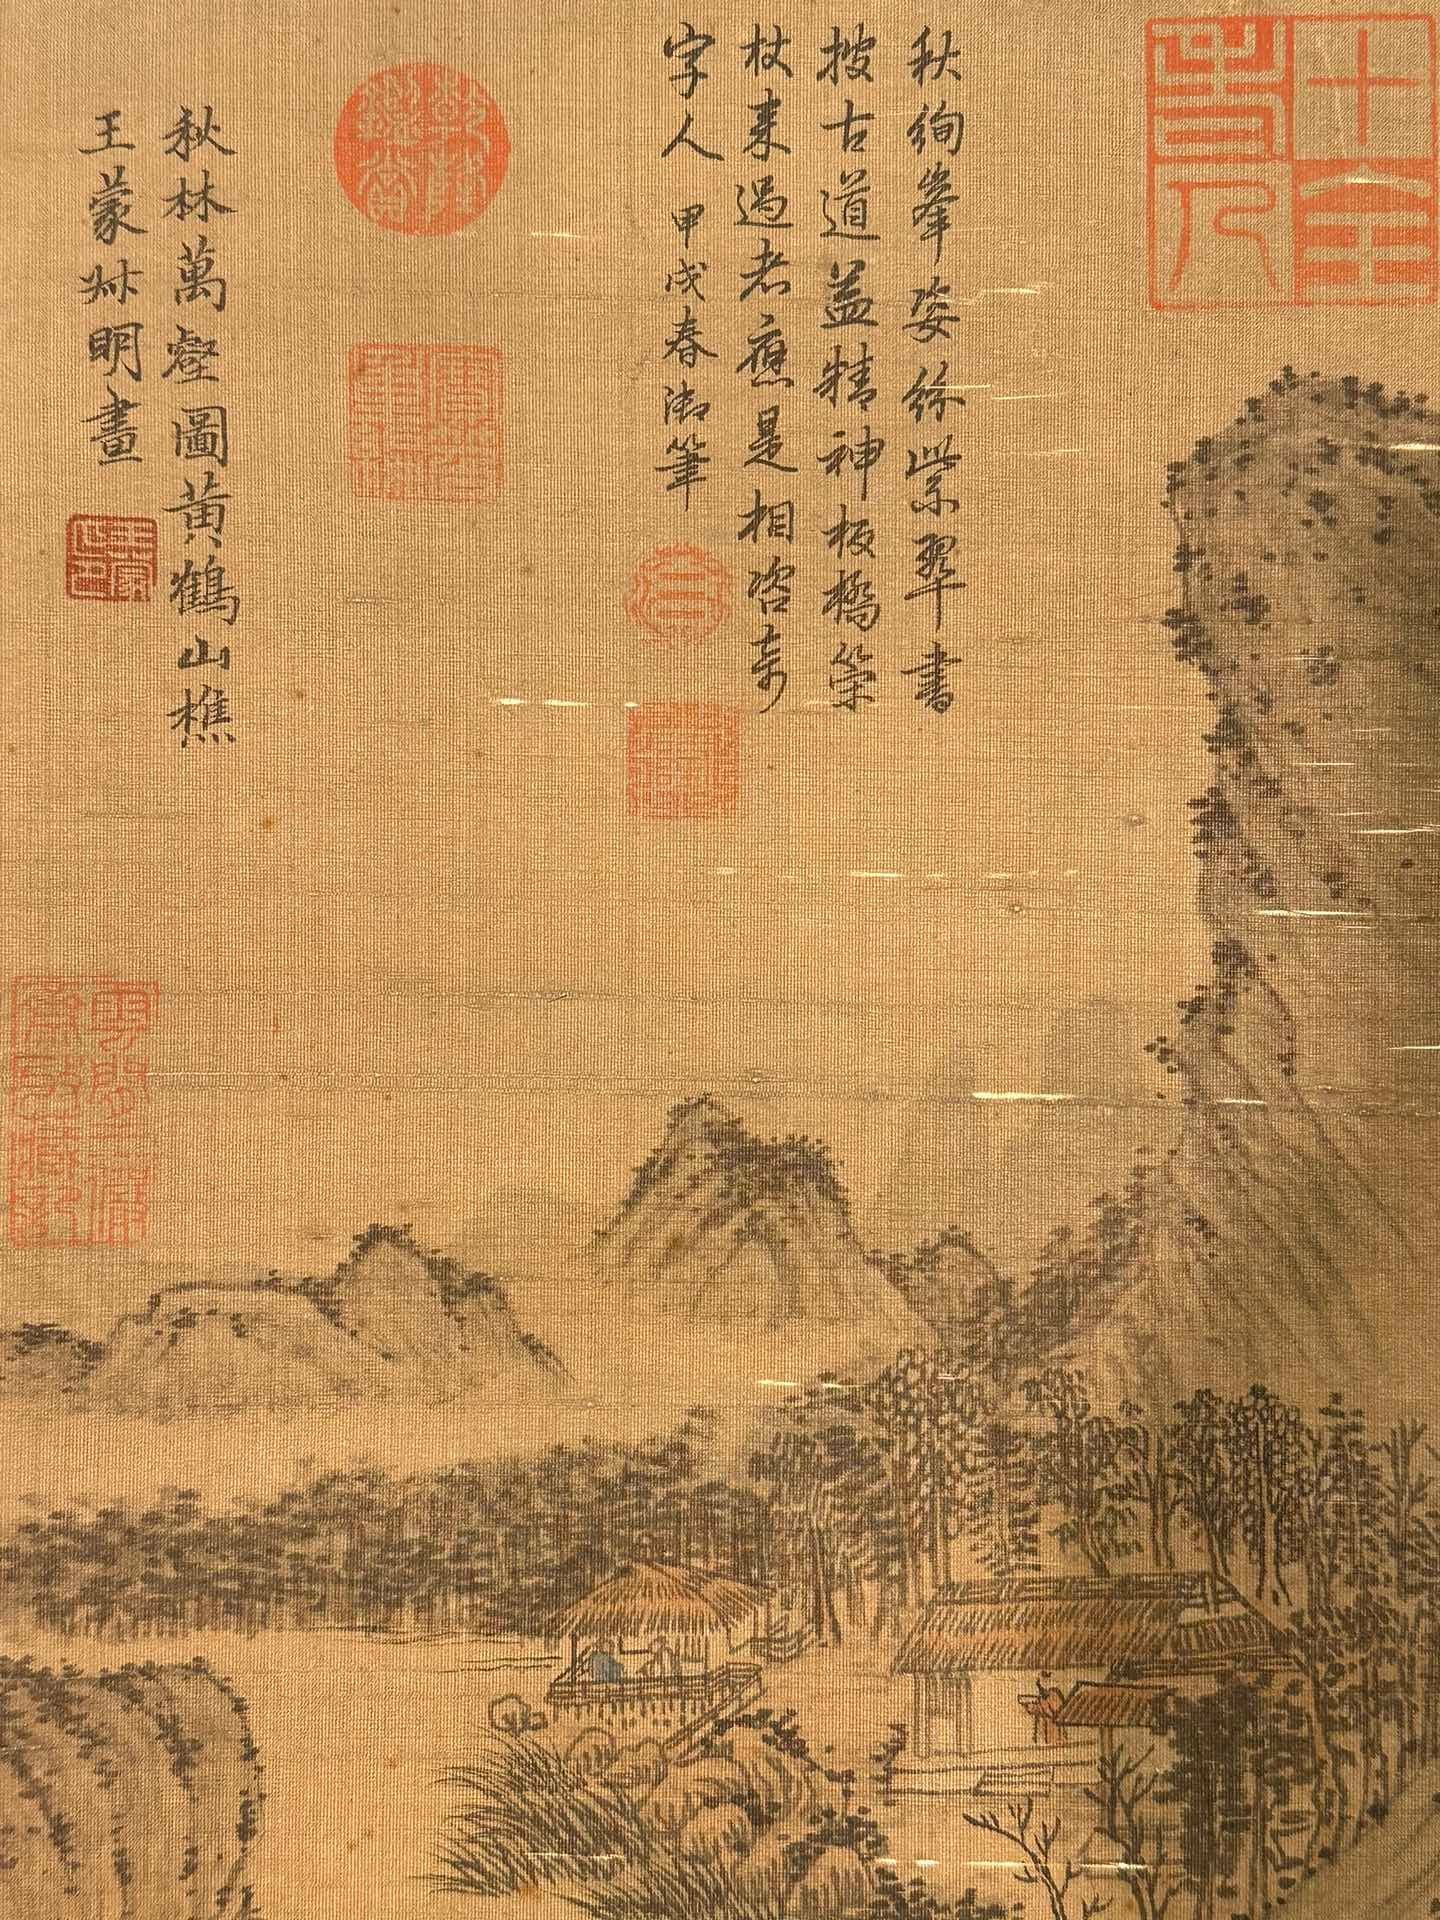 秋絢峯姿絲紫翠書
披古道益精神板橋策
杖來過老應是相咨奇
字人 甲戌春御筆
秋林萬壑圖黃鶴山樵
王蒙叔明畫
十全
老人
乾隆
鑑賞